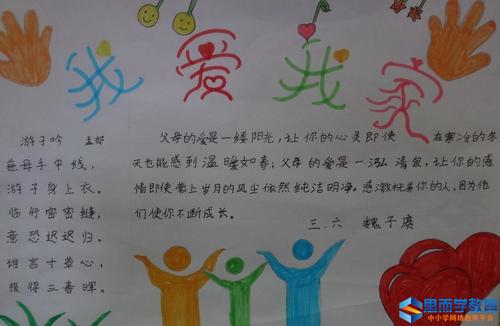 我爱我家
游子吟 孟郊
慈母手中线,
游子身上衣。
临行密密缝,
意恐迟迟归。
谁言寸草心,
报得三春晖。
父母的爱是一缕阳光,让你的心灵即使在寒冷的冬
天也能感到温暖如春;父母的爱是一泓清泉,让你的感
情即使蒙上岁月的风尘依然纯洁明净。感激抚养你的人,因为他
们使你不断成长。
三.六 魏子
思而学教育
中小学网络教育平台